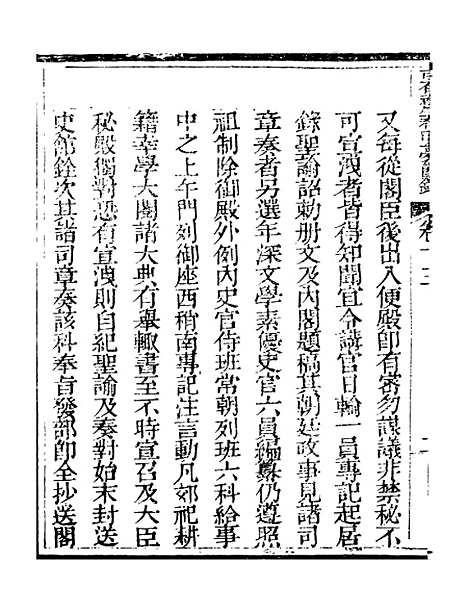 又每從閣臣後出入便殿即有密勿謀議非禁秘不
可宣洩者皆得知聞宜令講官日輪一員專記起居
錄聖諭詔勅册文及內閣題稿其朝廷政事見諸司
章奏者另選年深文學素優史官六員編纂仍遵照
祖制除御殿外例內史官侍班常朝列班六科給事
中之上午門列御座西稍南專記注言動凡郊祀耕
籍幸學大閱諸大典有舉輙書至不時宣召及大臣
秘殿獨對恐有宣洩則自紀聖諭及奏對始末封送
史館銓次其諸司章奏該科奉旨發部即全抄送閣
卷十三
二